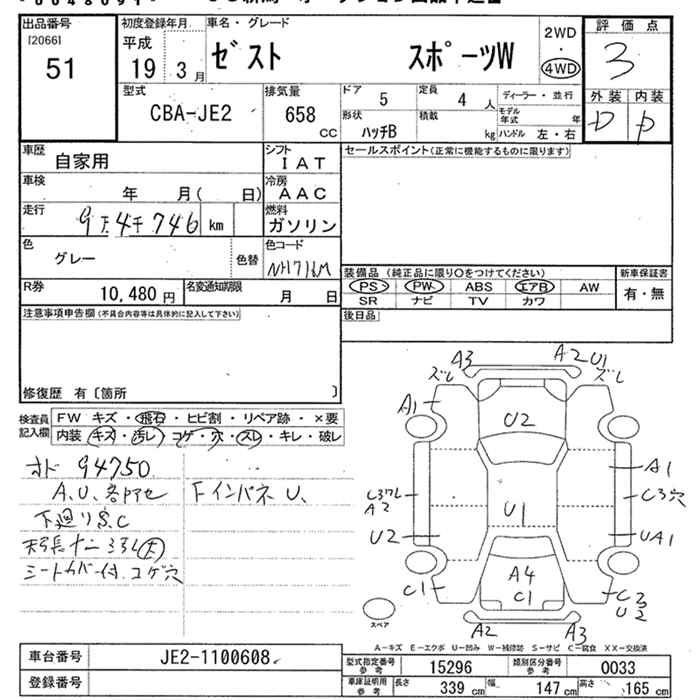 出品番号
[2066]
51
初度登録年月
平成
19 3 月
車名・グレード
ゼスト スポーツW
2WD
・
4WD
評価点
3
外装 内装
D D
型式
CBA-JE2
排気量
658
CC
ドア 5
定員 4 人
ディーラー・並行
形状 ハッチB
積載 kg
モデル年式 年
ハンドル 左・右
車歴 自家用
シフト IAT
セールスポイント(正常に機能するものに限ります)
車検 年 月( 日)
冷房 AAC
走行 9万4千746 km
燃料 ガソリン
色 グレー 色替
色コード NH718M
R券 10,480 円
名変通知期限 月 日
装備品(純正品に限り○をつけてください)
新車保証書
PS PW ABS エアB AW
SR ナビ TV カワ
有・無
後日品
注意事項申告欄(不具合内容等は具体的に記入して下さい)
修復歴 有〔箇所 〕
検査員記入欄
FW キズ・飛石・ヒビ割・リペア跡・×要
内装 キズ・汚レ・コゲ・穴・スレ・キレ・破レ
オド 94750
A、U、各所アセ
Fインパネ U、
下廻り S.C
シートカバー付、コゲ穴
A3
ズレ
A2 U1
ズレ
A1
U2
A1
C3ワレ
A2
C3穴
U1
U2
UA1
A4
C1
C1
C3
U2
A2
A3
スペア
A-キズ E-エクボ U-凹み W-補修跡 S-サビ C-腐食 XX-交換済
車台番号 JE2-1100608
登録番号
型式指定番号 参考 15296
類別区分番号 参考 0033
車庫証明用 参考 長さ 339 cm 幅 147 cm 高さ 165 cm